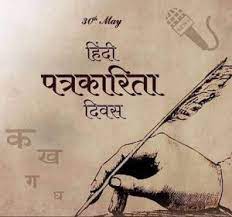 30th May
हिंदी
पत्रकारिता
दिवस
क
ख
ग
घ